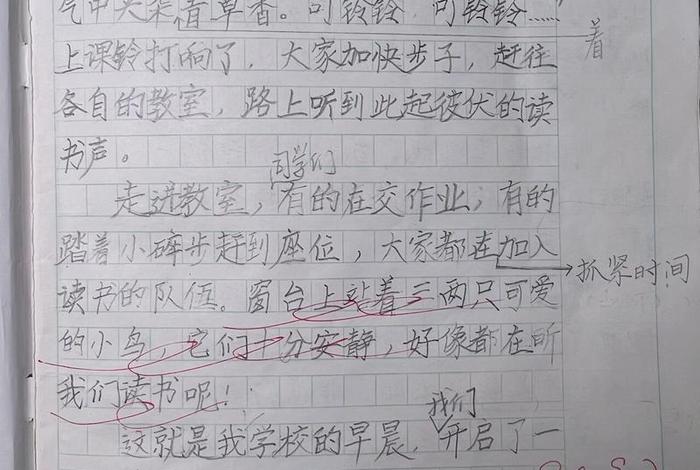 气中夹杂着草香。叮铃铃 叮铃铃……
着
上课铃打响了，大家加快步子，赶往
各自的教室，路上听到此起彼伏的读
书声。
同学们
走进教室，有的在交作业，有的
踏着小碎步赶到座位，大家都在加入
抓紧时间
读书的队伍。窗台上站着三两只可爱
的小鸟，它们十分安静，好像都在听
我们读书呢！
我们
这就是我学校的早晨，开启了一